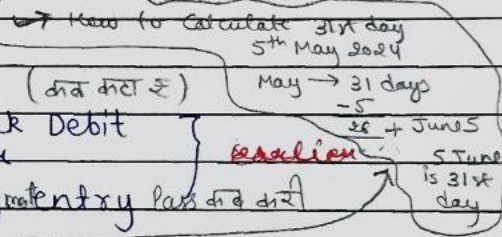 → How to Calculate 31st day
5th May 2024
(कब कटा है)
May → 31 days
-5
26 + June 5
k Debit
earlier
5 June
is 31st
day
entry Pass कब करी